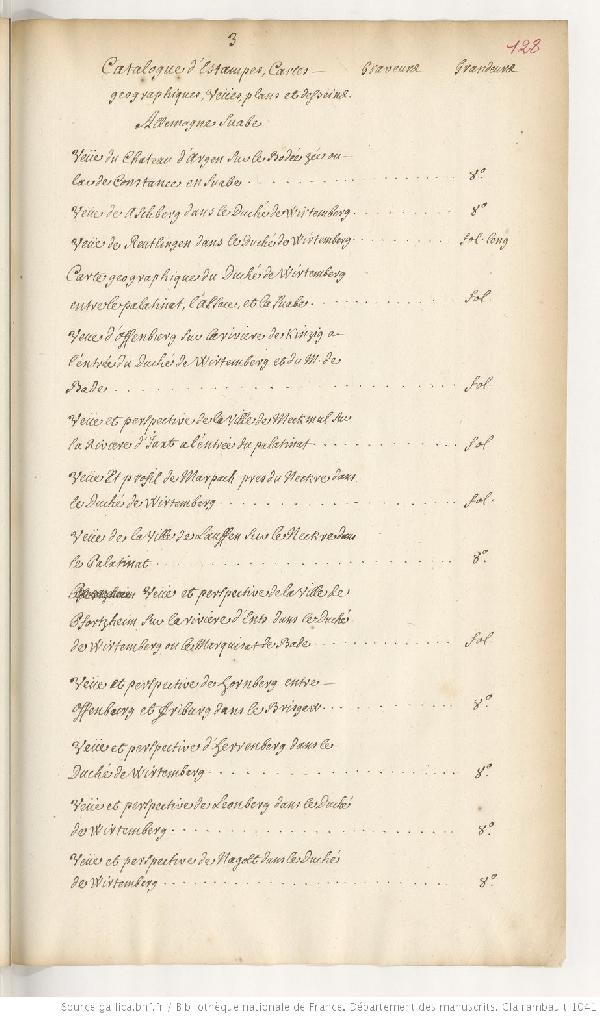 3
122
Catalogue d'Estampes, Cartes Graveurs Grandeurs
geographiques, Veües, plans et desseins.
Allemagne Suabe
Veüe du Chateau d'Argen sur le Bodée zée ou
lac de Constance en Suabe 8º
Veüe de Aschberg dans le Duché de Wirtemberg 8º
Veüe de Reutlingen dans le duché de Wirtemberg fol. long
Carte geographique du Duché de Wirtemberg
entre le palatinat, l'alsace, et la Suabe fol
Veue d'Offenburg sur la riviere de Kinzig a
l'entrée du Duché de Wirtemberg et du M. de
Bade fol.
Veüe et perspective de la Ville de Meckmul sur
la Riviere d'Jaxt a l'entrée du palatinat fol
Veüe Et profil de Marpach pres du Neckre dans
le Duché de Wirtemberg fol.
Veüe de la Ville de Lauffen sur le Neckre dans
le Palatinat 8º
Veüe et perspective de la Ville de
Pfortzheim sur la riviere d'Ents dans le Duché
de Wirtemberg ou le Marquisat de Bade fol.
Veüe et perspective de Hornberg entre
Offenbourg et Friburg dans le Brisgew 8º
Veüe et perspective d'Herrenberg dans le
Duché de Wirtemberg 8º
Veüe et perspective de Leonberg dans le Duché
de Wirtemberg 8º
Veüe et perspective de Nagolt dans le Duché
de Wirtemberg 8º
Source gallica.bnf.fr / Bibliothèque nationale de France. Département des manuscrits. Clairambault 1041